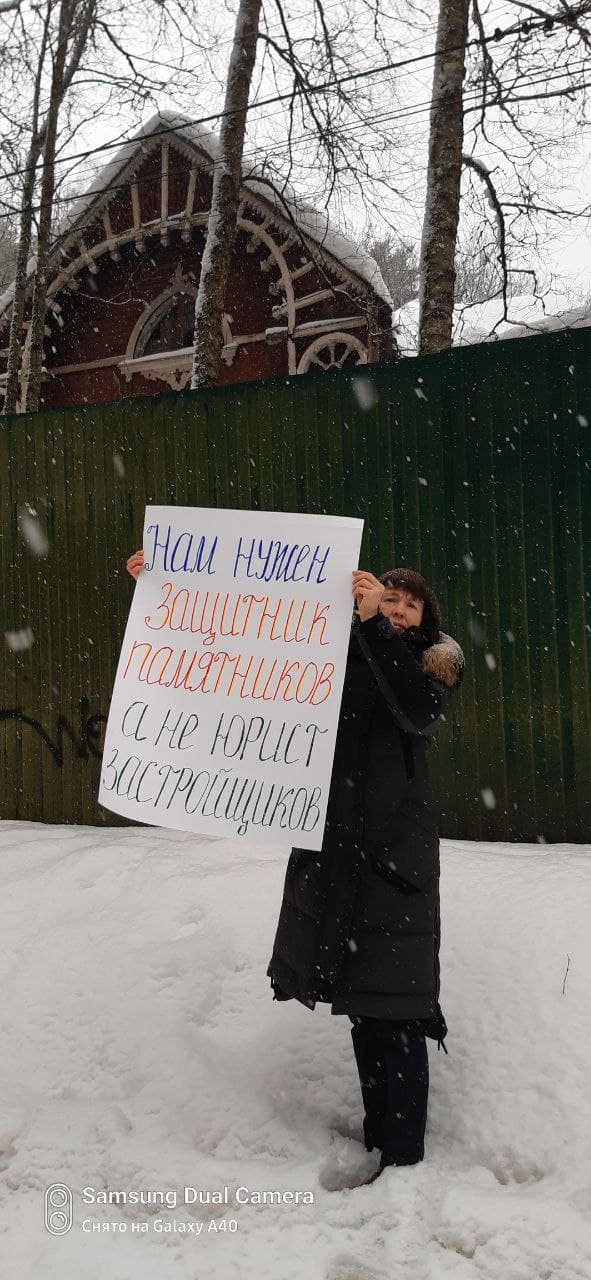 Нам нужен
защитник
памятников
а не юрист
застройщиков
Samsung Dual Camera
Снято на Galaxy A40